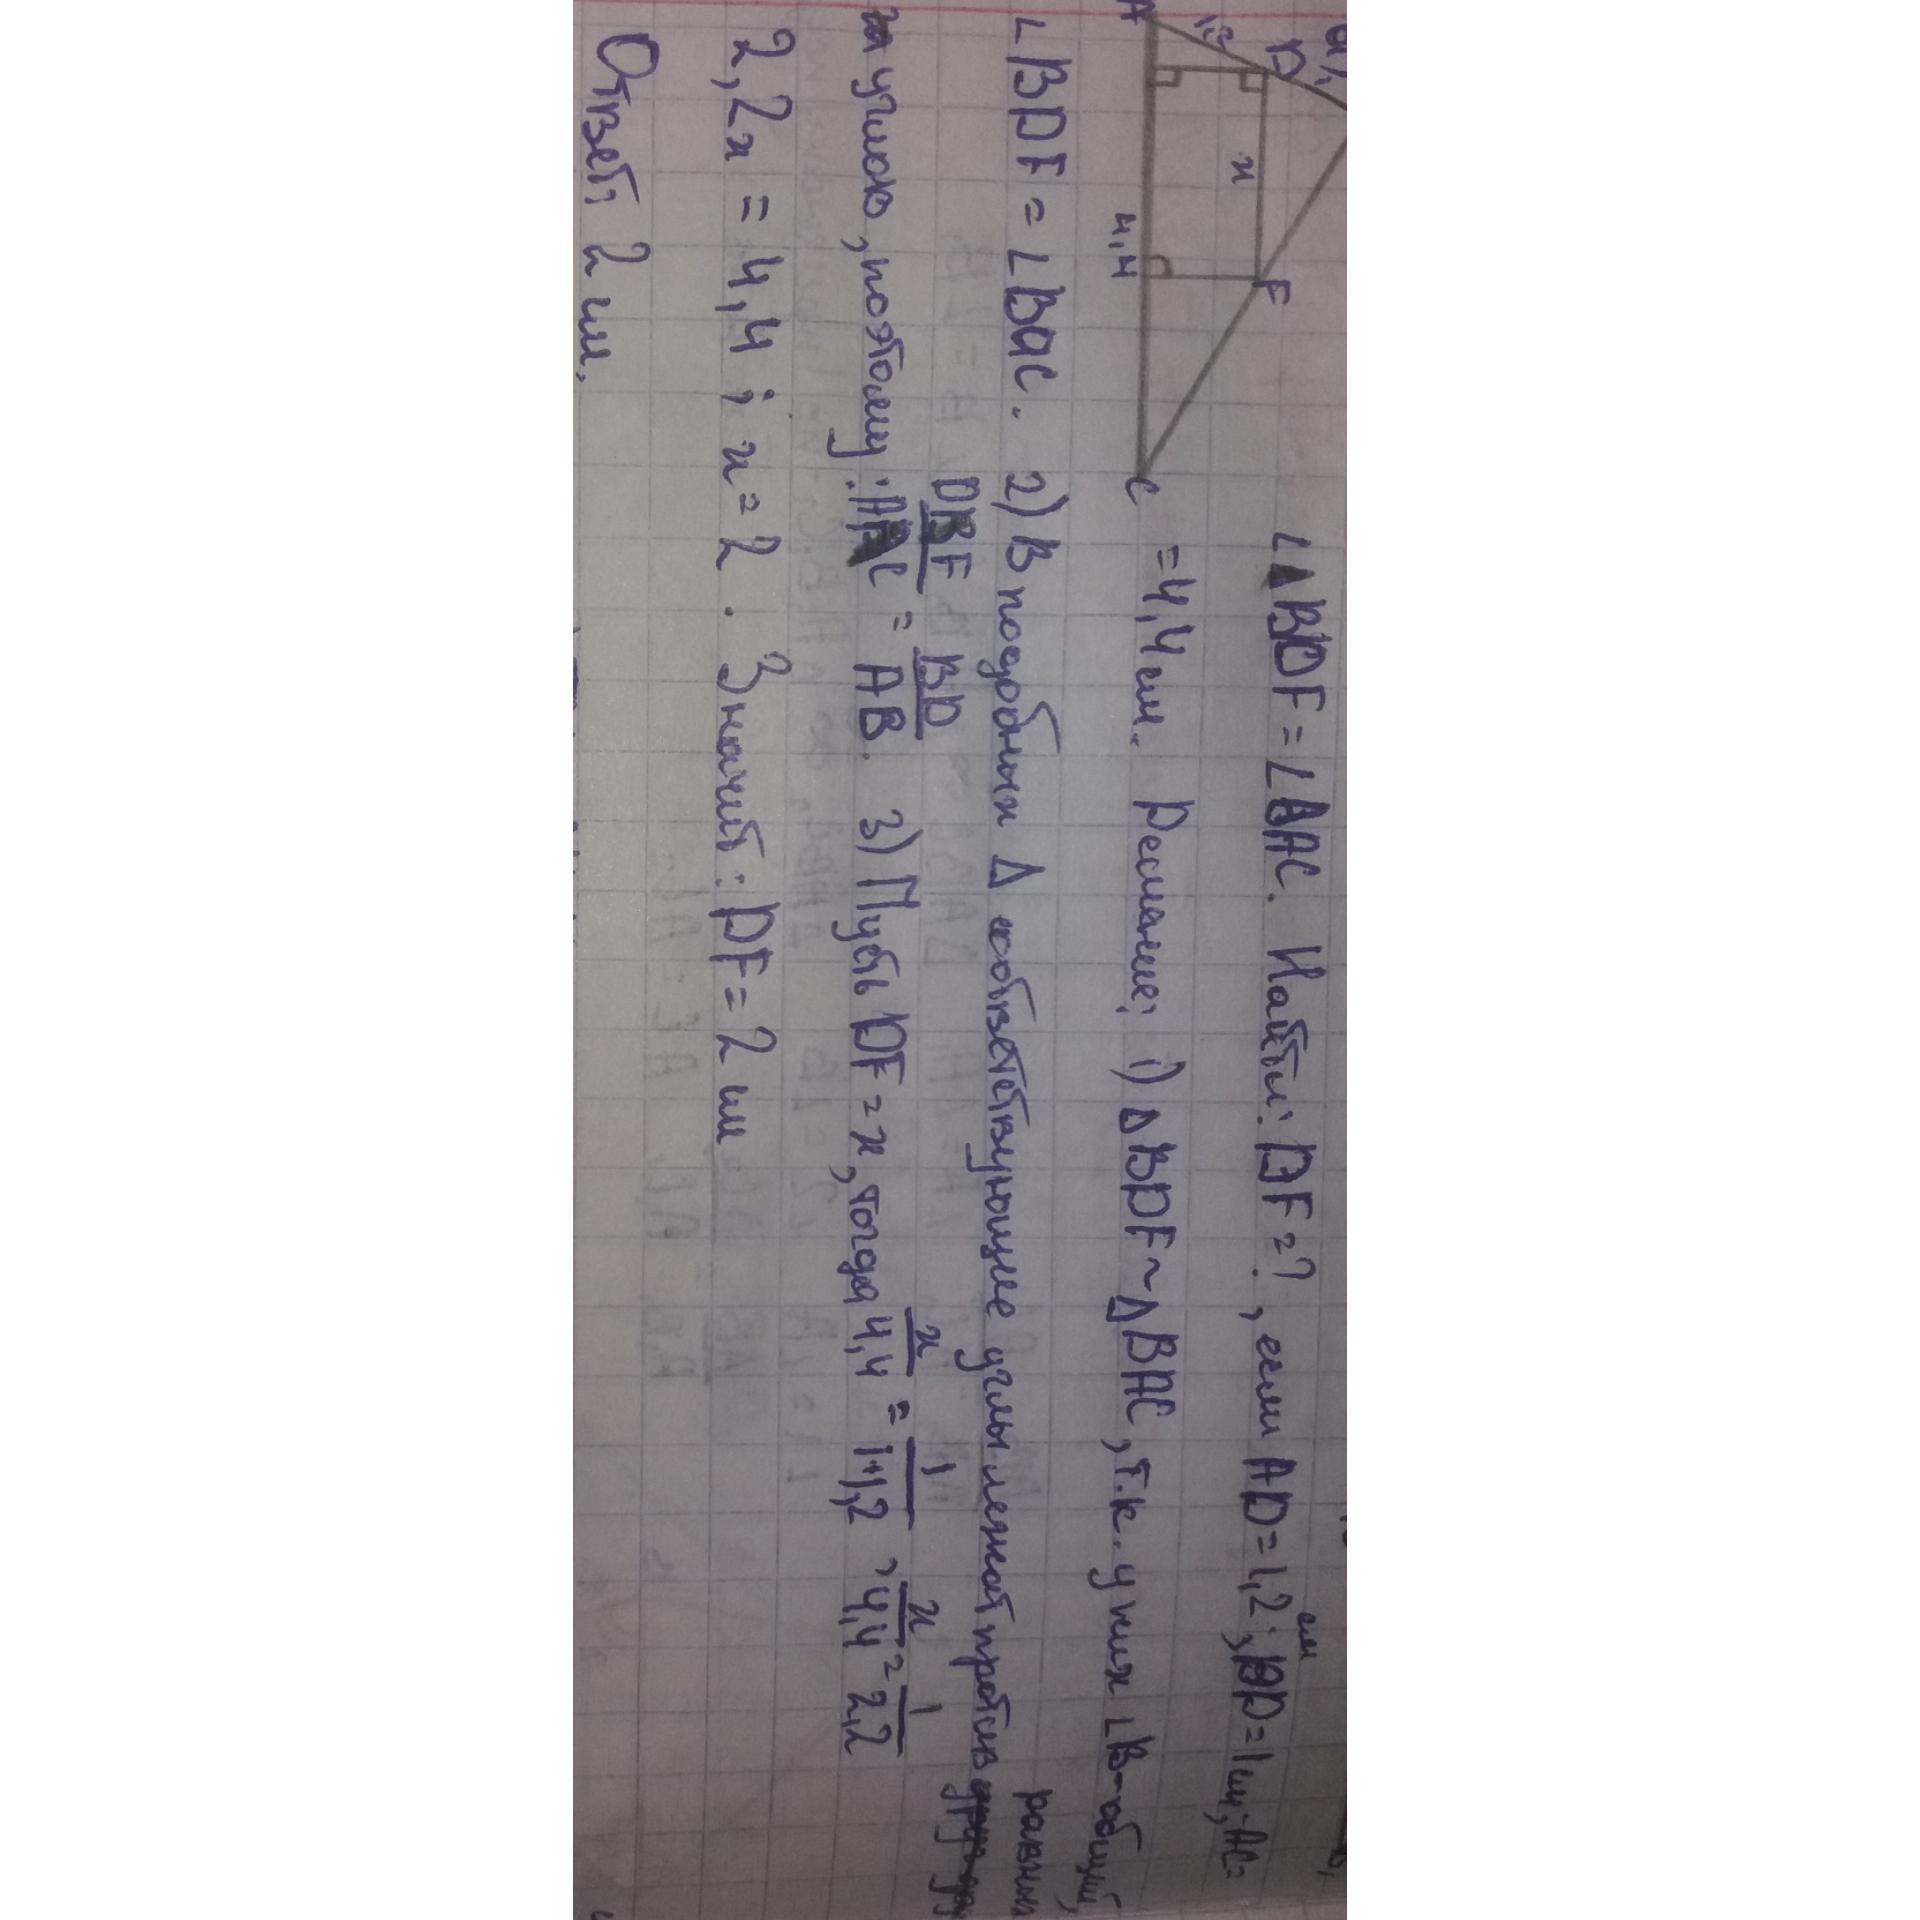 а),
D
1,2
A
x
F
4,4
C
∠BDF = ∠BAC. Найти: DF = ?, если AD = 1,2 см; BD = 1 см, AC =
= 4,4 см. Решение: 1) ΔBDF ~ ΔBAC, т.к. у них ∠B - общий,
∠BDF = ∠BAC. 2) В подобных Δ соответствующие углы лежат против равных
углов, поэтому: DF/AC = BD/AB. 3) Пусть DF = x, тогда x/4,4 = 1/1+1,2, x/4,4 = 1/2,2
2,2x = 4,4; x = 2. Значит: DF = 2 см
Ответ: 2 см.